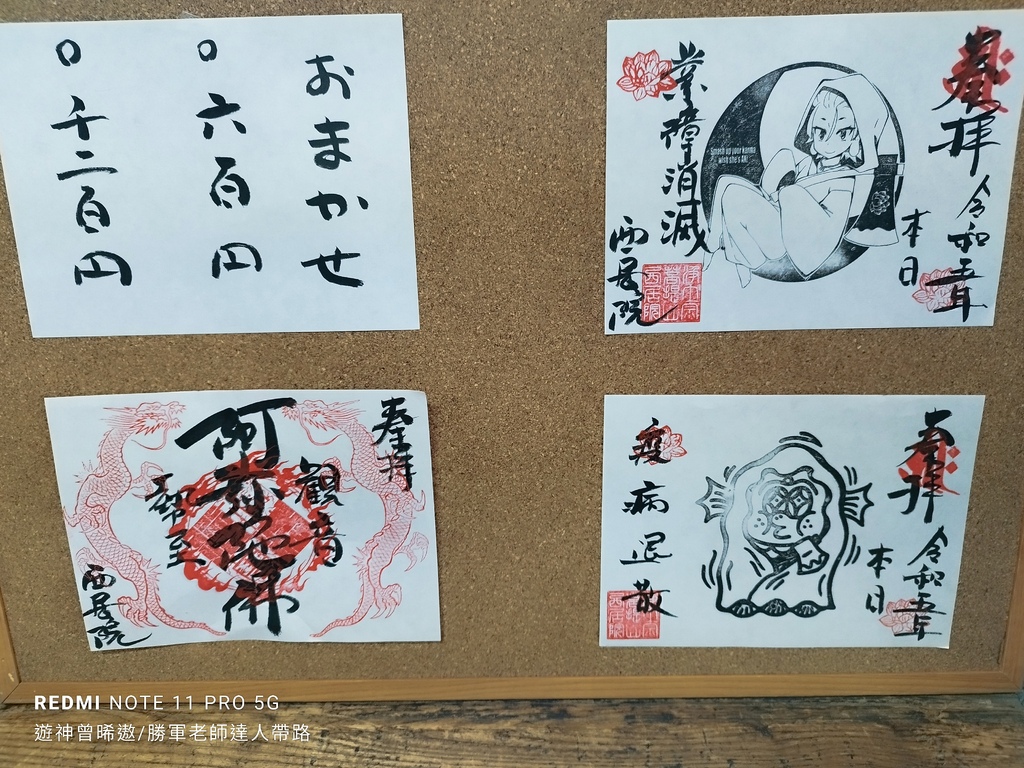 おまかせ
○ 六百円
○ 千二百円
奉拝
令和五年
本日
Smash up your karma
with she's AX!
業障消滅
西居院
西居院
奉拝
觀音
阿弥陀佛
勢至
西居院
奉拝
令和五年
本日
疫病退散
REDMI NOTE 11 PRO 5G
遊神曾晞遨/勝軍老師達人帶路